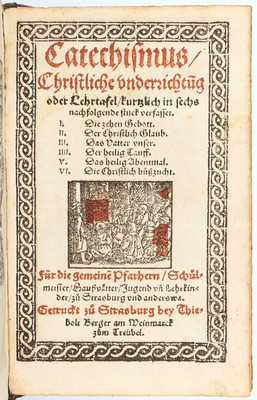 Catechismus/
Christliche vnderrichtũg
oder Lehrtafel/kurtzlich in sechs
nachfolgende stuck verfasset.
I. Die zehen Gebott.
II. Der Christlich Glaub.
III. Das Vatter vnser.
IIII. Der heilig Tauff.
V. Das heilig Abentmal.
VI. Die Christlich bůßzucht.
Für die gemeine Pfarhern/Schůl-
meister/Haußvåtter/Jugend vñ Lehrkin-
der/zů Strasburg vnd anderswa.
Getruckt zů Strasburg bey Thie-
bolt Berger am Weinmarck
zům Treübel.